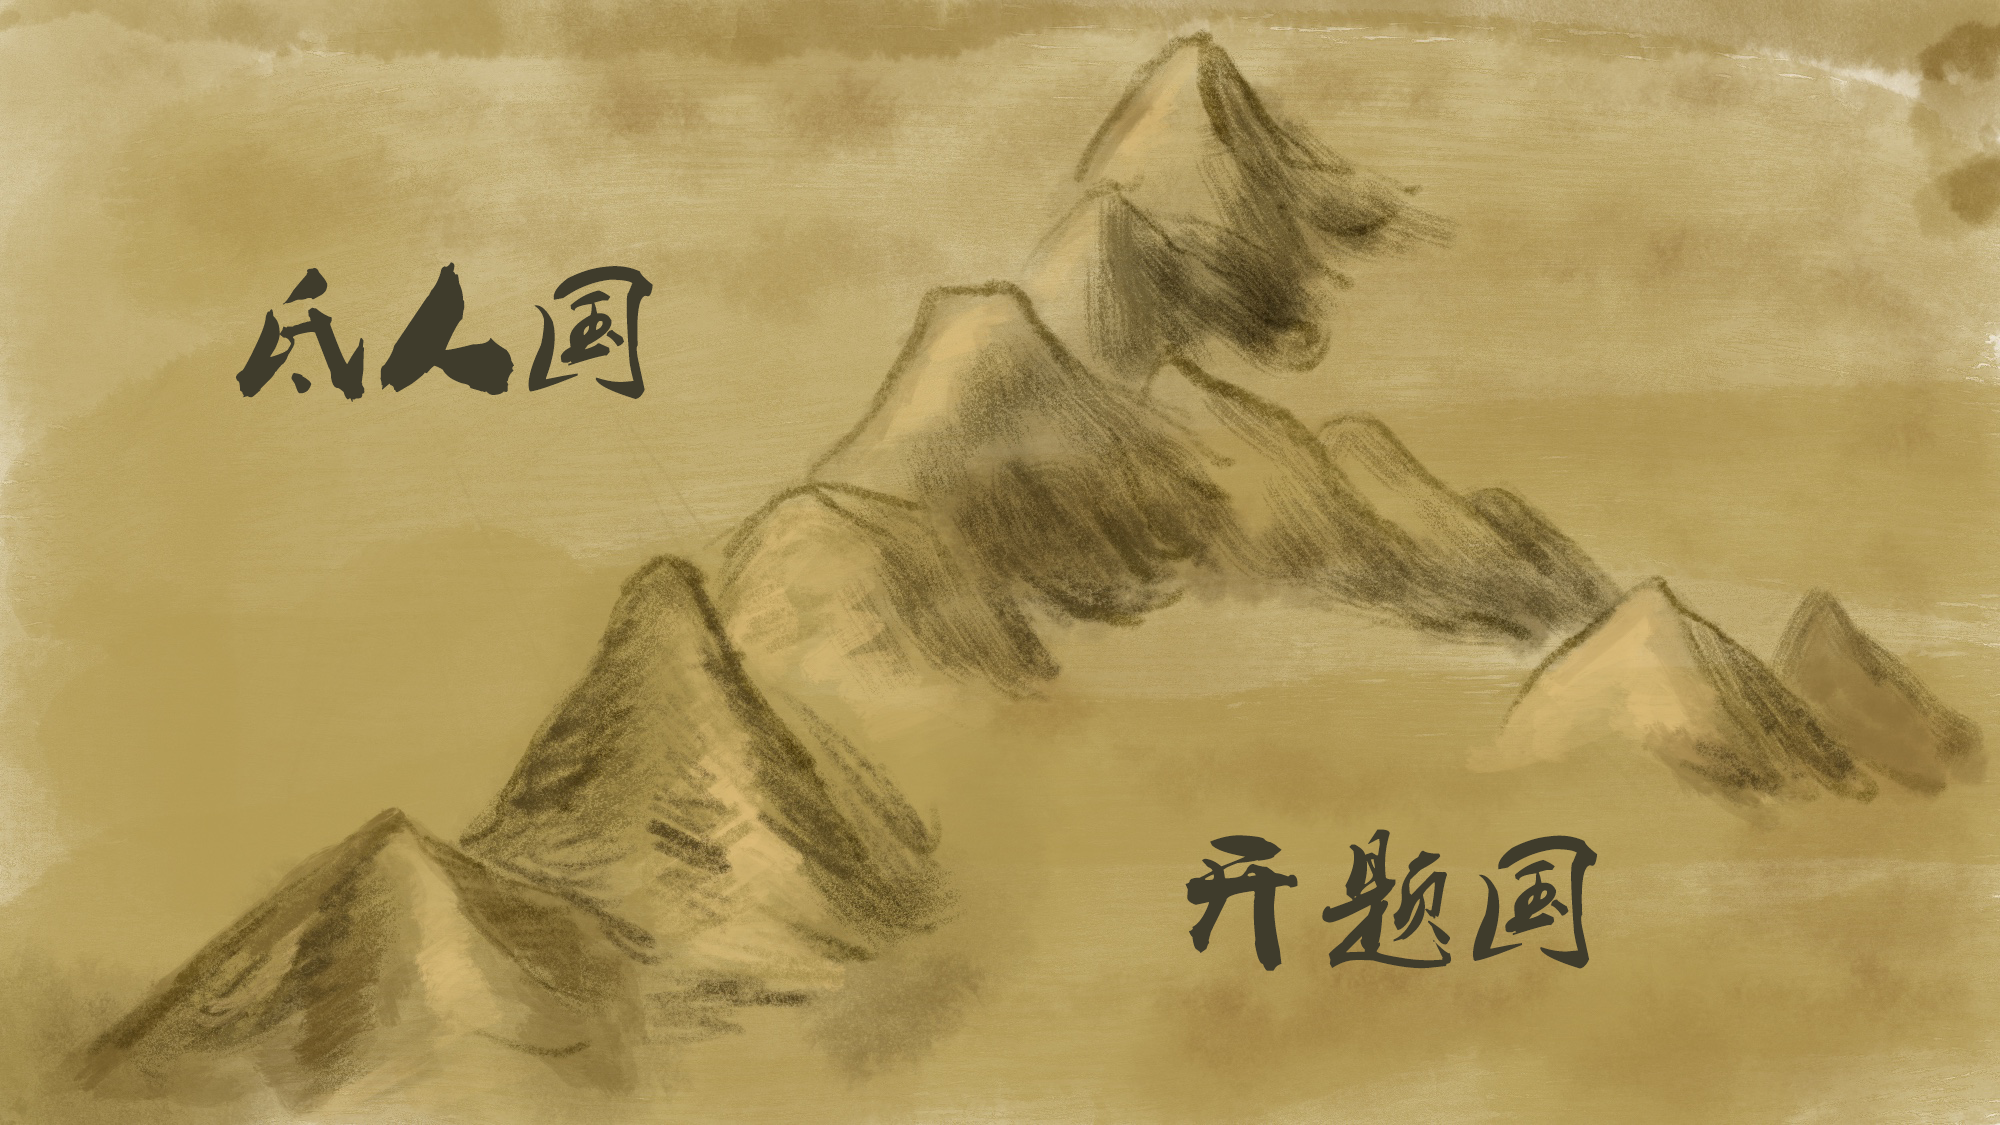 氐人国
开题国